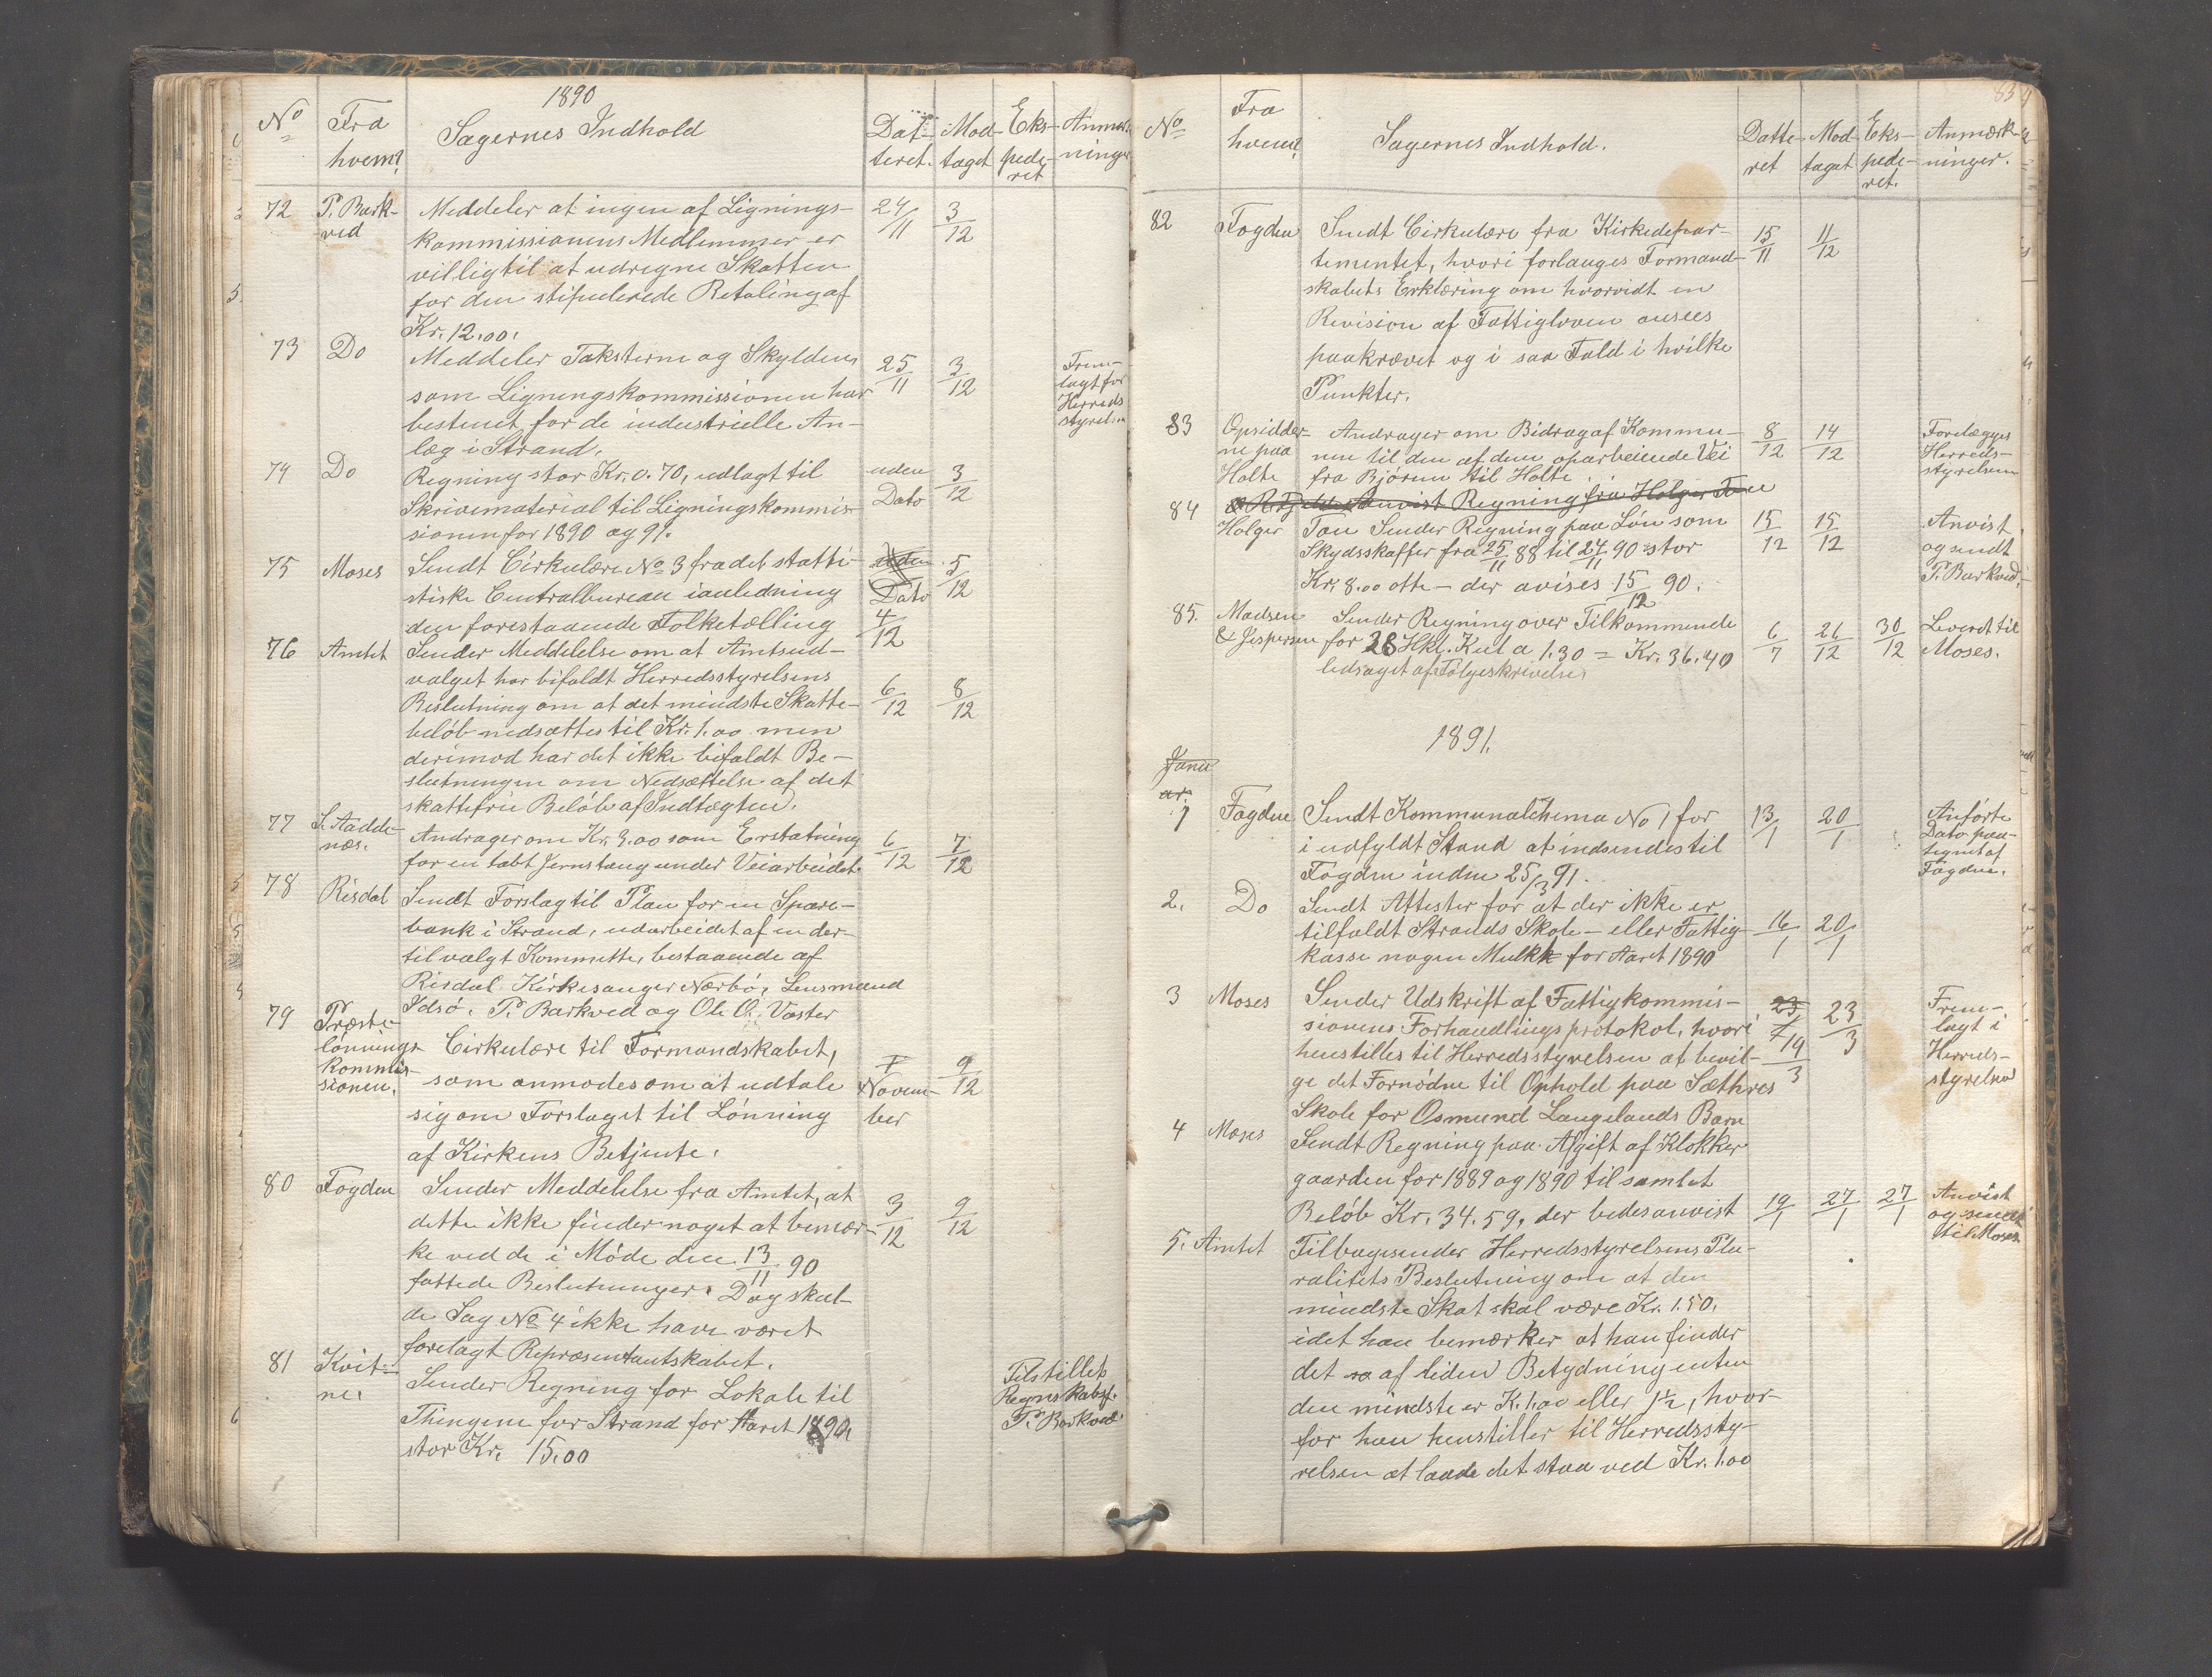 1890
No Fra hvem? Sagernes Indhold Datteret. Modtaget Ekspederet Anmærkninger
72 P. Barkved Meddeler at ingen af Lignings- 24/11 3/12
kommissionens Medlemmer er
villig til at udregne Skatten
for den stipulerede Betaling af
Kr. 12.00.
73 Do Meddeler Taksterne og Skylden 25/11 3/12 Frem-
som Ligningskommissionen har lagt for
bestemt for de industrielle An- Herreds
læg i Strand. styrelsen
74 Do Regning stor Kr. 0.70, udlagt til uden 3/12
Skrivematerial til Ligningskommis- Dato
sionen for 1890 og 91.
75 Moses Sendt Cirkulære No 3 fra det statti- uden 5/12
stiske Centralbureau i anledning Dato
den forestaaende Folketælling 4/12
76 Amtet Sender Meddelelse om at Amtsud-
valget har bifaldt Herredsstyrelsens
Beslutning om at det mindste Skatte- 6/12 8/12
beløb nedsættes til Kr. 1.00 men
derimod har det ikke bifaldt Be-
slutningen om Nedsættelse af det
skattefrie Beløb af Indtægten.
77 Andrager om Kr. 3.00 som Erstatning 6/12 7/12
for en tabt Jernstang under Veiarbeidet.
78 Risdal Sendt Forslag til Plan for en Spare-
bank i Strand, udarbeidet af en der-
til valgt Kommitte, bestaaende af
Risdal Kirkesanger Nærbø, Lensmand
Idsø, P. Barkved og Ole O. Vaster
79 Præste-
lønnings Cirkulære til Formandskabet,
kommis- som anmodes om at udtale Novem- 9/12
sionen. sig om Forslaget til Lønning ber
af Kirkens Betjente.
80 Fogden Sender Meddelelse fra Amtet, at 3/12 9/12
dette ikke finder noget at bemær-
ke ved de i Møde den 13/11 90
fattede Beslutninger. Dog skul-
de Sag No 4 ikke have været
forelagt Repræsentantskabet.
81 Kvit- Sender Regning for Lokale til Tilstillet
ne. Thingene for Strand for Aaret 1890, Regnskabsf.
stor Kr. 15.00 P. Barkved
No Fra hvem? Sagernes Indhold. Datteret Modtaget Ekspederet. Anmærkninger.
82 Fogden Sendt Cirkulære fra Kirkedepar- 15/11 11/12
tementet, hvori forlanges Formand-
skabets Erklæring om hvorvidt en
Revision af Fattigloven ansees
paakrævet og i saa Fald i hvilke
Punkter.
83 Opsidder- Andrager om Bidrag af Kommu- 8/12 14/12 Forelægges
ne paa nen til den af dem oparbeiede Vei Herreds-
Holte fra Bjørnen til Holte. styrelsen
84 Anvist Regning fra Holger Tau
Holger Tau Sender Regning paa Løn som 15/12 15/12 Anvist
Skydsskaffer fra 25/11 88 til 24/11 90 stor og sendt
Kr. 8.00 otte – der avises 15/12 90. P. Barkved.
85. Madsen Sender Regning over Tilkommende
& Jespersen for 28 Hkl. Kul a 1.30 = Kr. 36.40 6/7 26/12 30/12 Leveret til
ledsaget af Følgeskrivelse Moses.
1891.
Janu
ar.
1 Fogden Sendt Kommunalchema No 1 for 13/1 20/1 Anførte
i udfyldt Stand at indsendes til Dato paa-
Fogden inden 25/3 91. tegnet af
Fogden.
2. Do Sendt Attester for at der ikke er
tilfaldt Strands Skole- eller Fattig- 16/1 20/1
kasse nogen Mulkt for Aaret 1890
3 Moses Sender Udskrift af Fattigkommis- 23 23/3 Frem-
sionens Forhandlingsprotokol, hvori lagt i
henstilles til Herredsstyrelsen at bevil- 19/3 Herreds-
ge det Fornødne til Ophold paa Sæthres styrelsen
Skole for Osmund Langelands Barn
4 Moses Sendt Regning paa Afgift af Klokker
gaarden for 1889 og 1890 til samlet
Beløb Kr. 34.59, der bedes anvist 19/1 27/1 27/1 Anvist
og sendt
til Moses
5. Amtet Tilbagesender Herredsstyrelsens Plu-
ralitets Beslutning om at den
mindste Skat skal være Kr. 1.50.
idet han bemærker at han finder
det af liden Betydning enten
den mindste er K. 1.00 eller 1½, hvor-
for han henstiller til Herredssty-
relsen at lade det staa ved Kr. 1.00